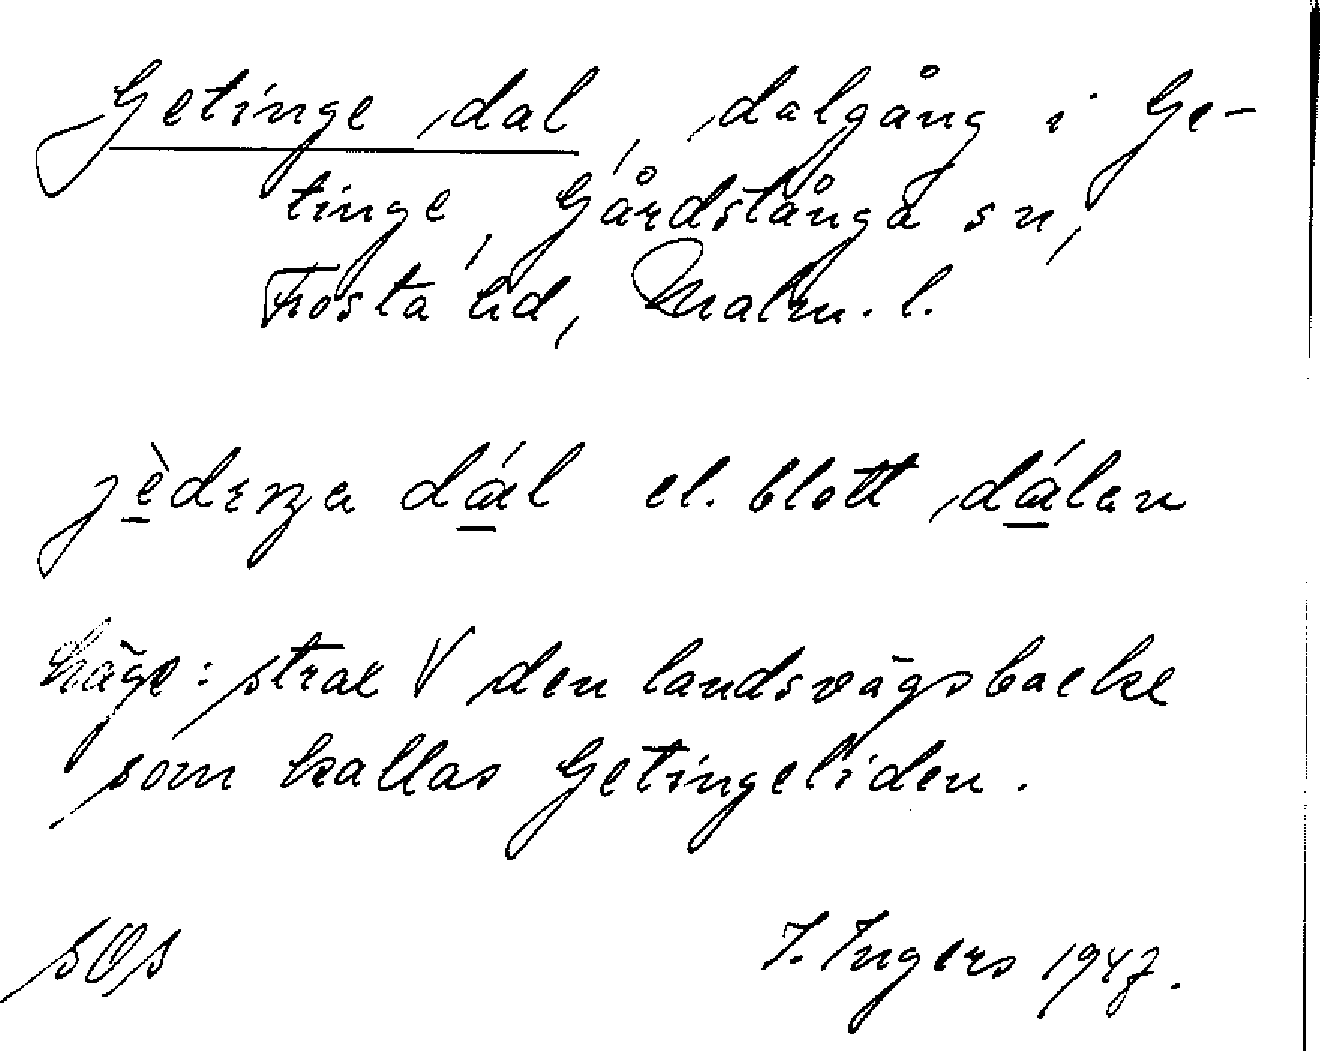 Getinge dal, dalgång i Ge-
tinge, Gårdstånga sn,
Frosta hd, Malm. l.
el. blott
Läge: strax V den landsvägsbacke
som kallas Getingeliden.
sOs I. Ingers 1947.